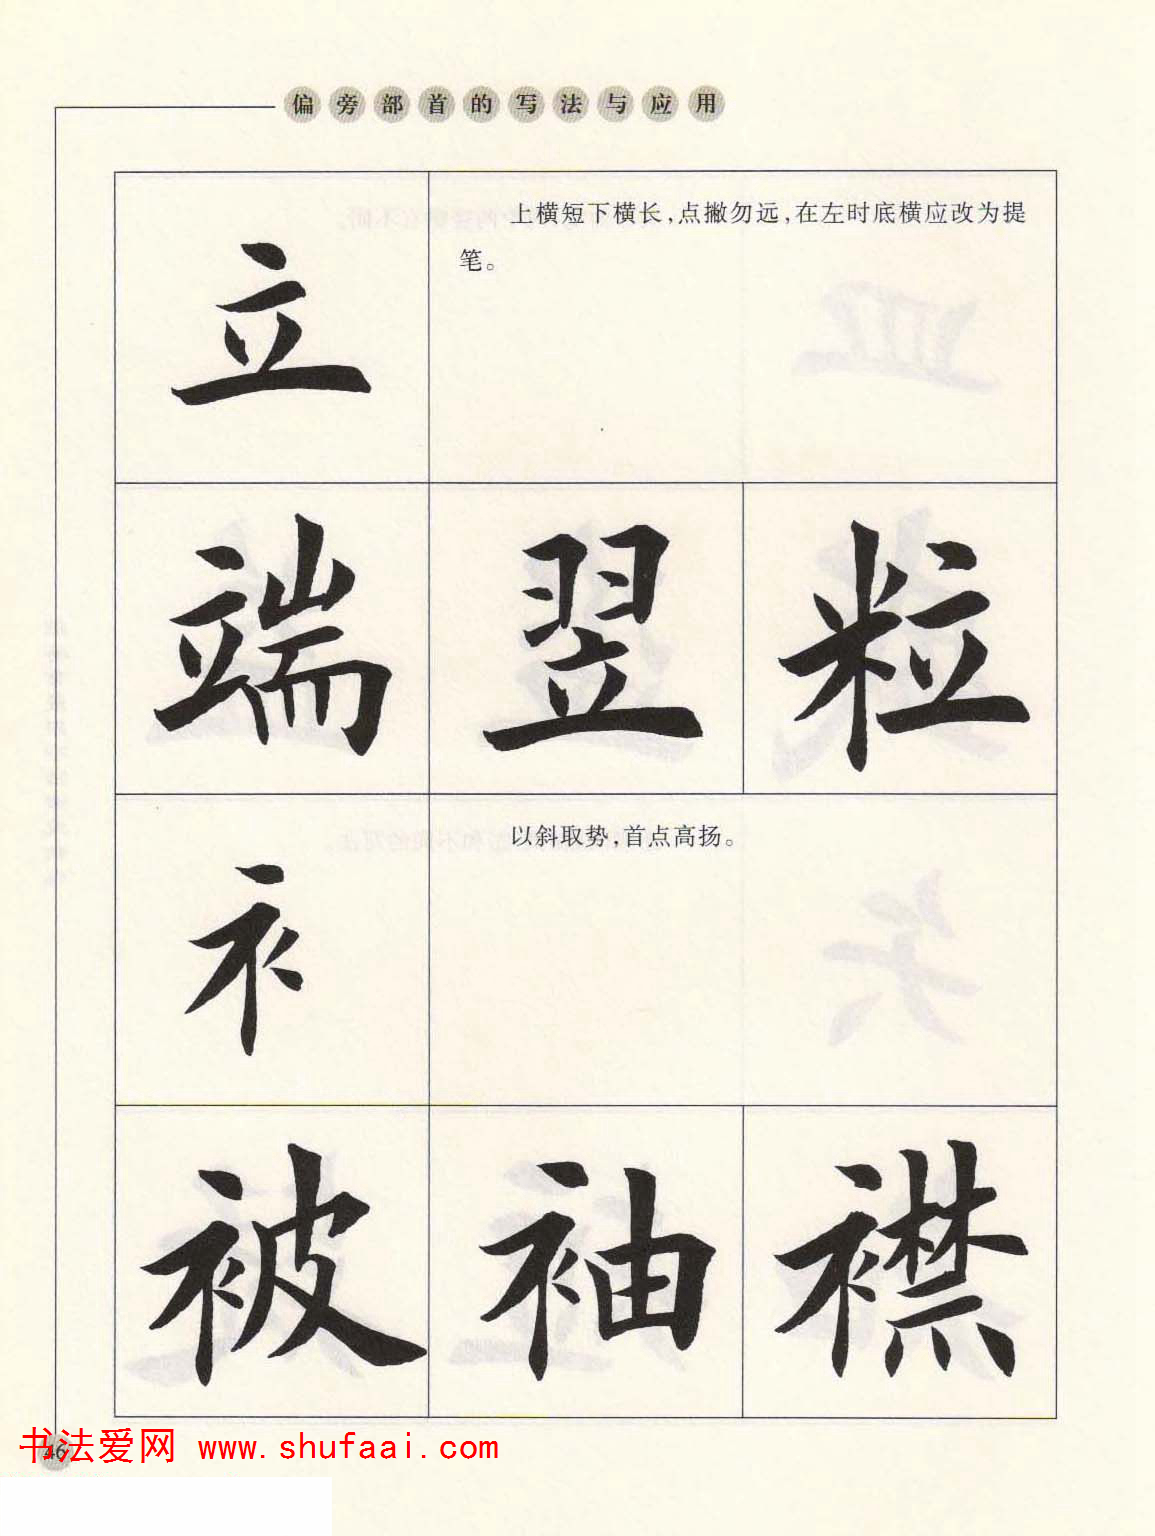 偏旁部首的写法与应用
立
上横短下横长，点撇勿远，在左时底横应改为提
笔。
端 翌 粒
衤
以斜取势，首点高扬。
被 袖 襟
46
书法爱网 www.shufaai.com